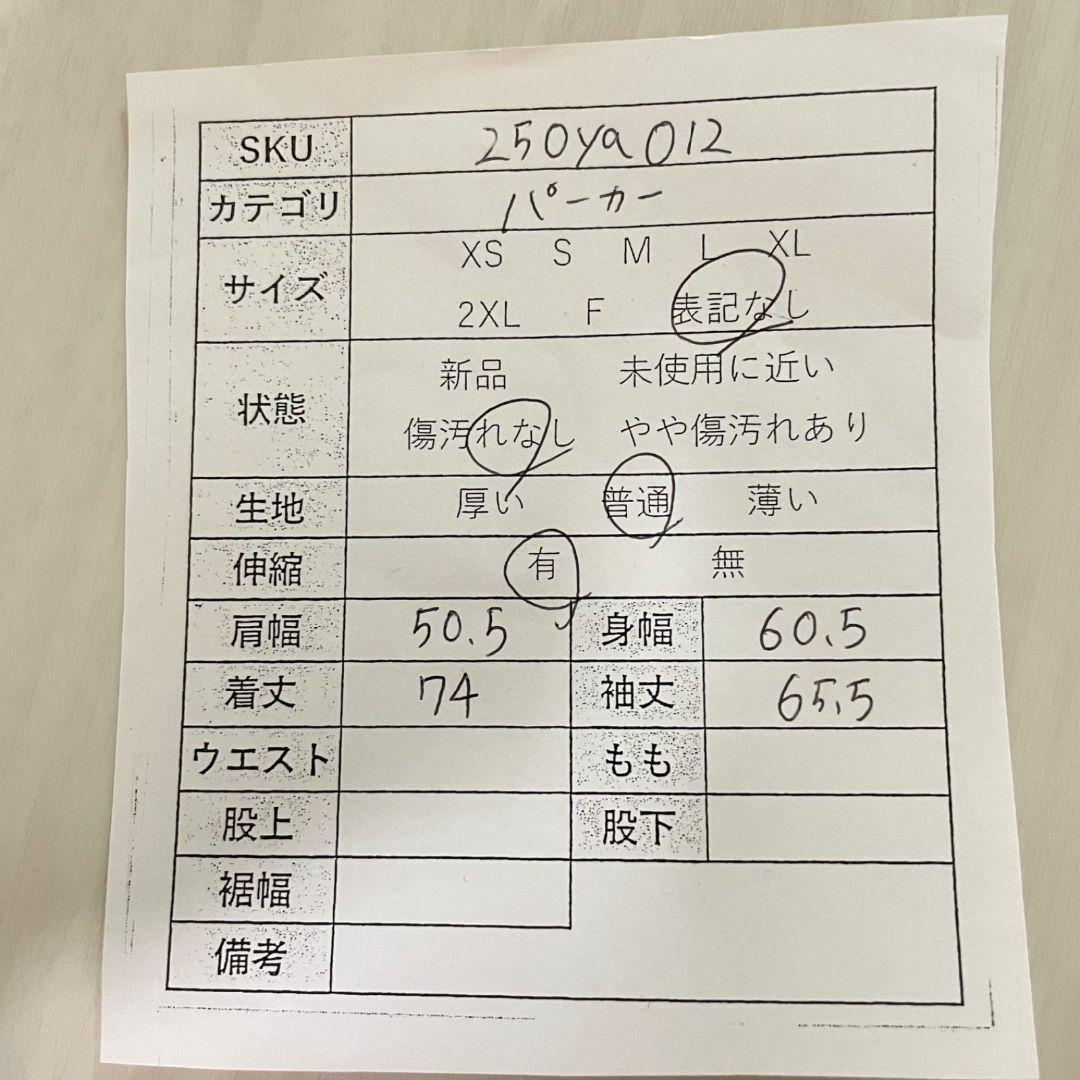 SKU 250ya012
カテゴリ パーカー
サイズ XS S M L XL
2XL F 表記なし
状態 新品 未使用に近い
傷汚れなし やや傷汚れあり
生地 厚い 普通 薄い
伸縮 有 無
肩幅 50.5 身幅 60.5
着丈 74 袖丈 65.5
ウエスト もも
股上 股下
裾幅
備考